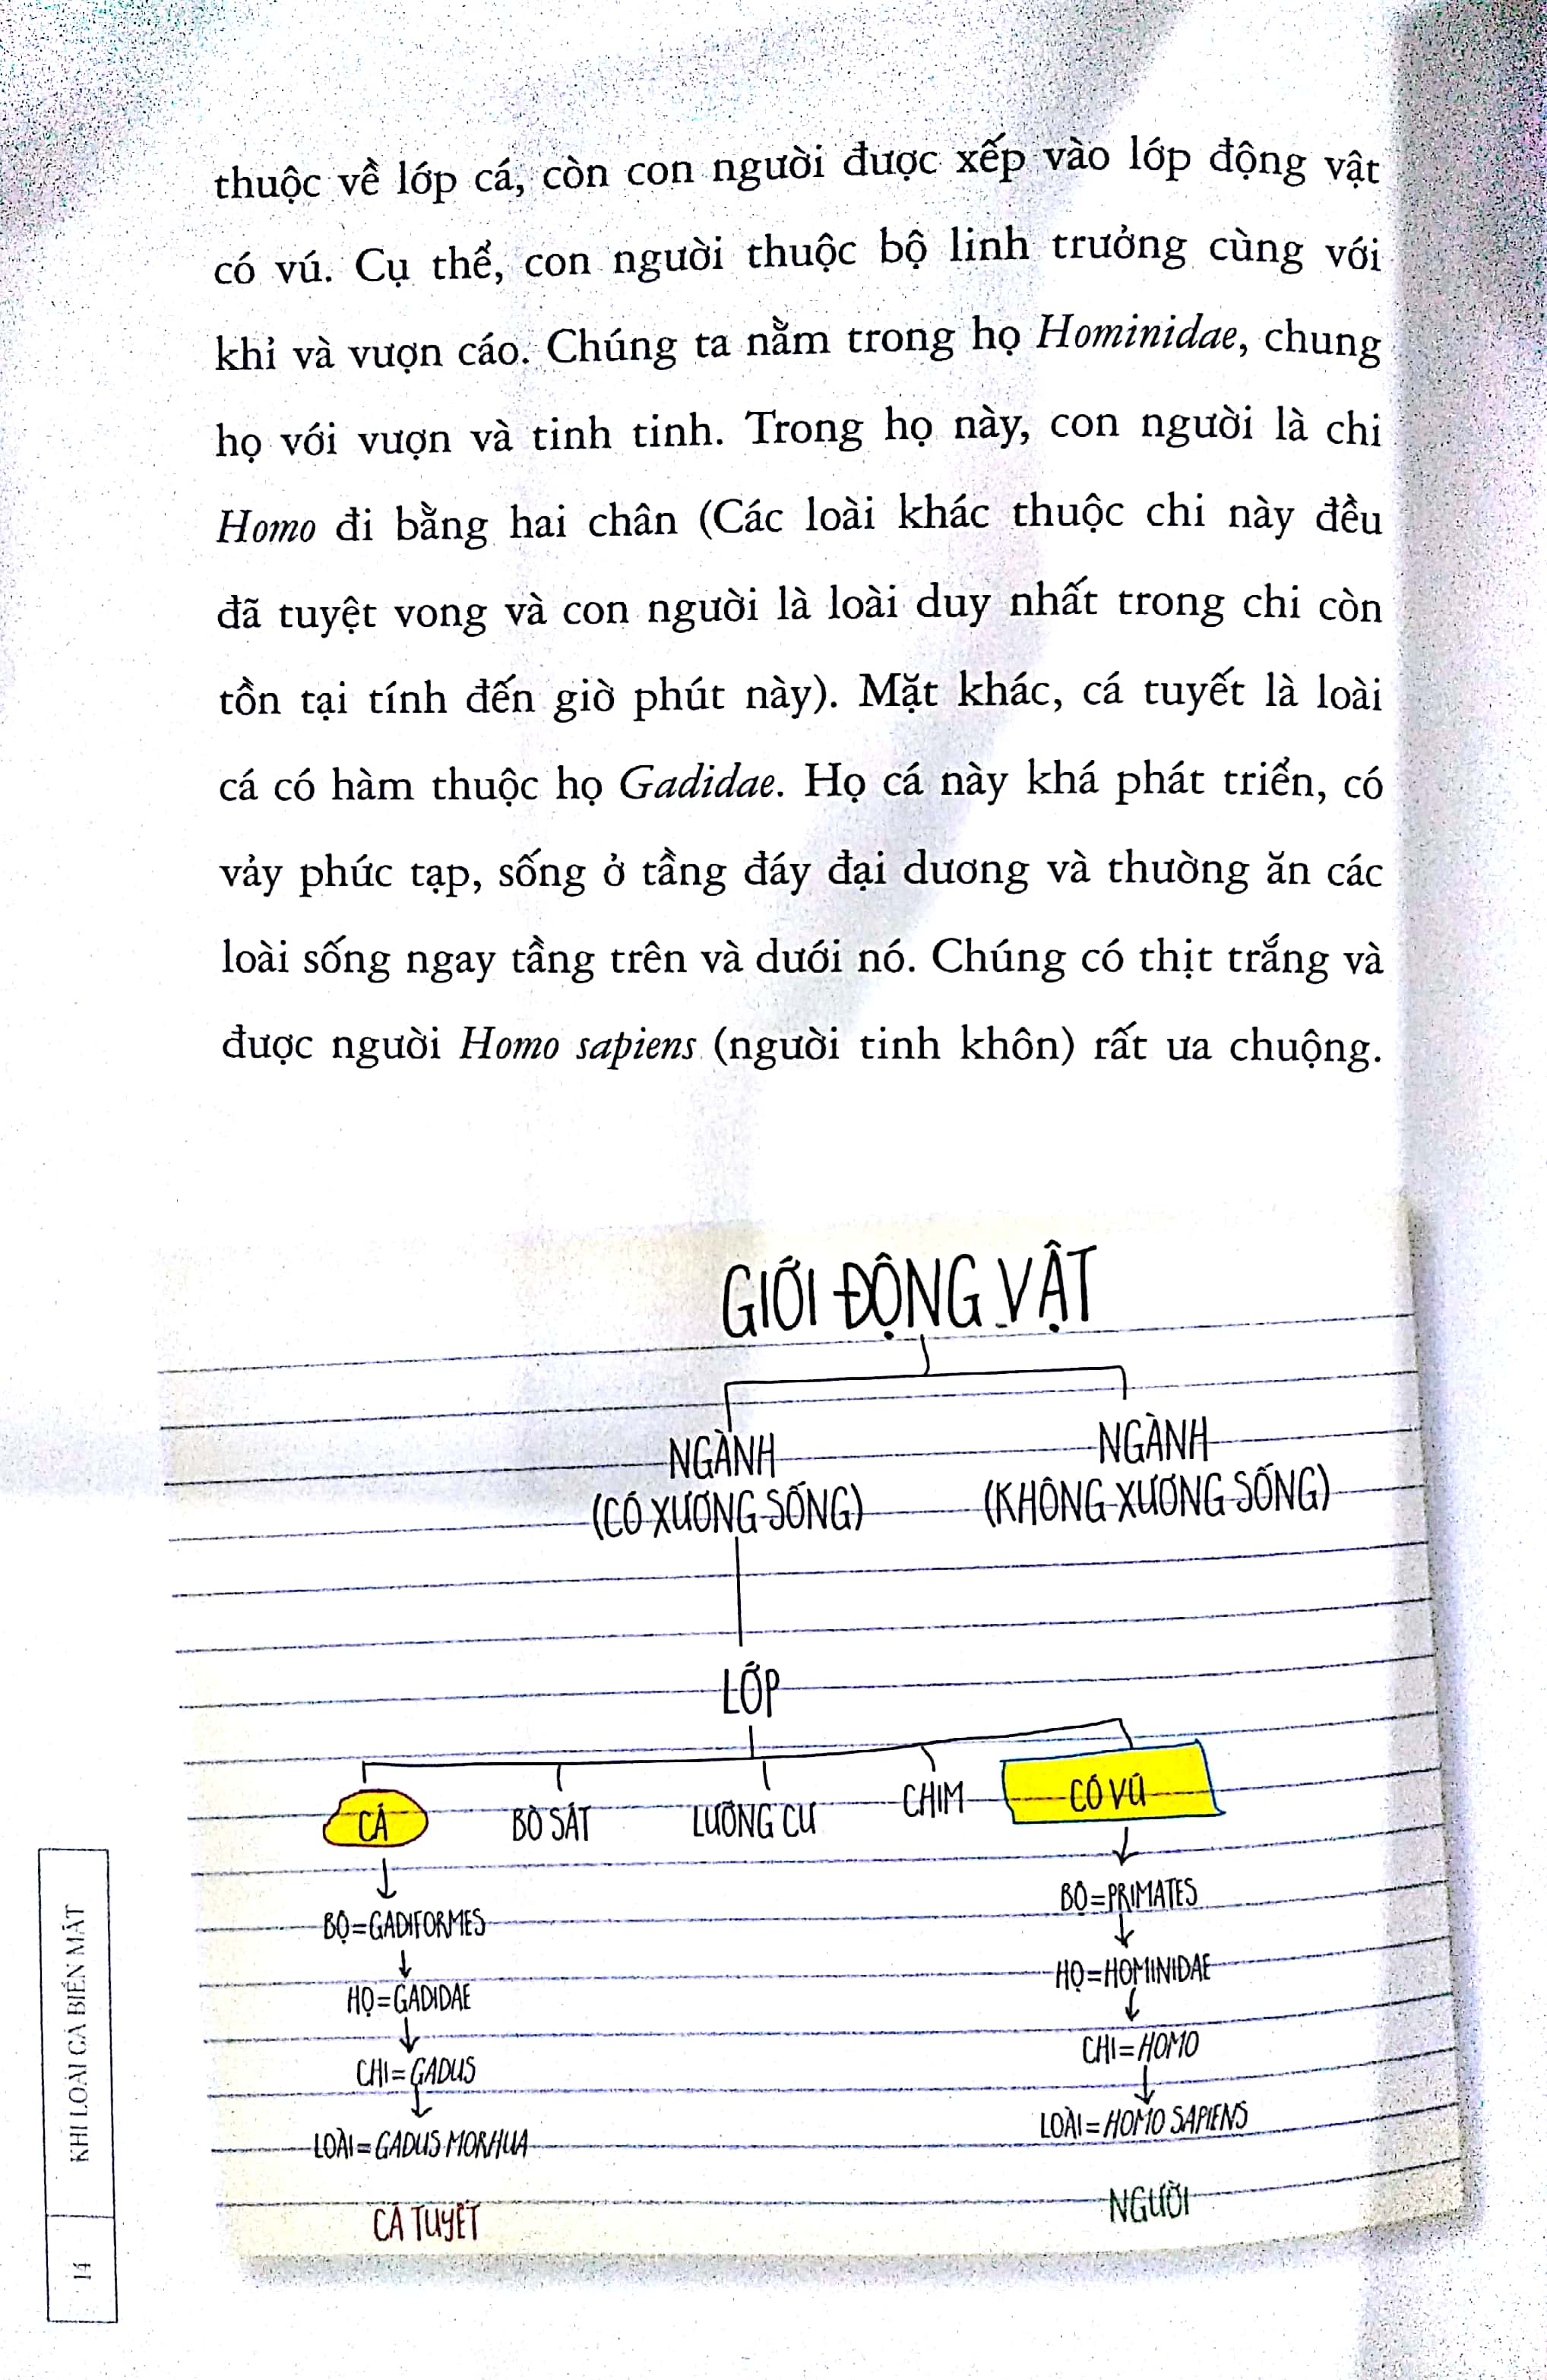 thuộc về lớp cá, còn con người được xếp vào lớp động vật
có vú. Cụ thể, con người thuộc bộ linh trưởng cùng với
khỉ và vượn cáo. Chúng ta nằm trong họ Hominidae, chung
họ với vượn và tinh tinh. Trong họ này, con người là chi
Homo đi bằng hai chân (Các loài khác thuộc chi này đều
đã tuyệt vong và con người là loài duy nhất trong chi còn
tồn tại tính đến giờ phút này). Mặt khác, cá tuyết là loài
cá có hàm thuộc họ Gadidae. Họ cá này khá phát triển, có
vảy phức tạp, sống ở tầng đáy đại dương và thường ăn các
loài sống ngay tầng trên và dưới nó. Chúng có thịt trắng và
được người Homo sapiens (người tinh khôn) rất ưa chuộng.
GIỚI ĐỘNG VẬT
NGÀNH
(CÓ XƯƠNG SỐNG)
NGÀNH
(KHÔNG XƯƠNG SỐNG)
LỚP
CÁ BÒ SÁT LƯỠNG CƯ CHIM CÓ VÚ
BỘ=GADIFORMES
HỌ=GADIDAE
CHI=GADUS
LOÀI=GADUS MORHUA
CÁ TUYẾT
BỘ=PRIMATES
HỌ=HOMINIDAE
CHI=HOMO
LOÀI=HOMO SAPIENS
NGƯỜI
KHI LOÀI CÁ BIẾN MẤT
14